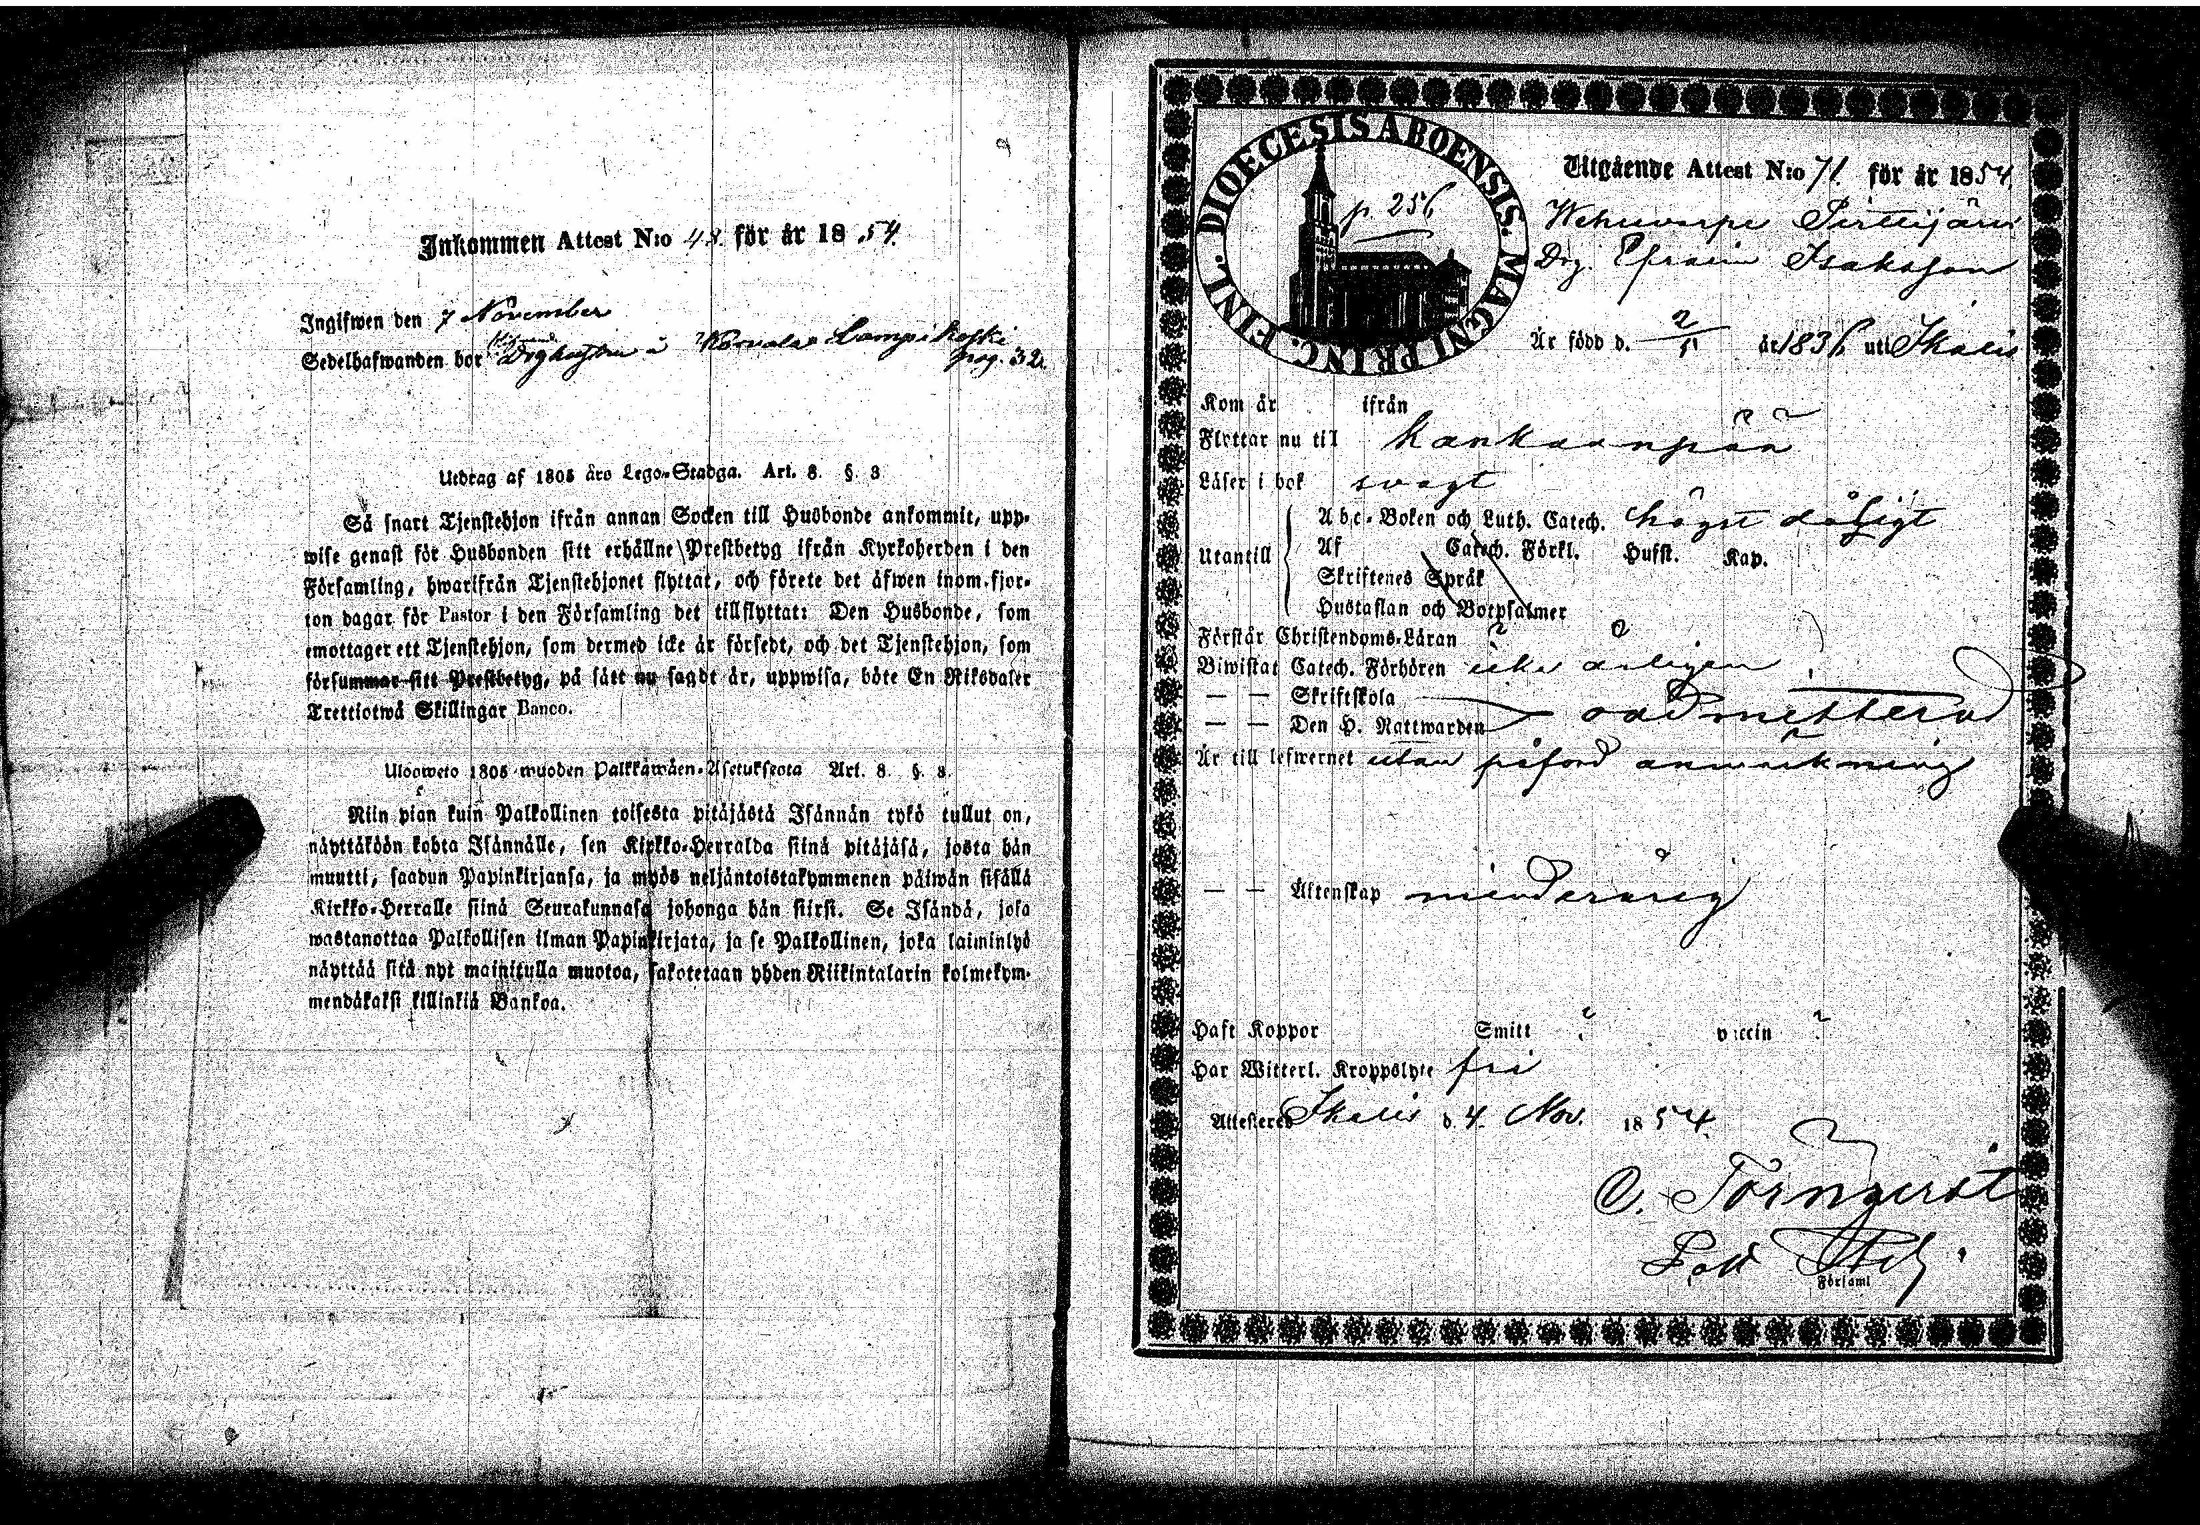 Inkommen Attest N:o 48 för år 1854.
Ingifwen den 7 November
Sedelhafwanden bor i Lampikoski
pag. 32.
Utdrag af 1805 års Lego-Stadga. Art. 8. §. 3
Så snart Tjenstehjon ifrån annan Socken till Husbonde ankommit, upp-
wise genast för Husbonden sitt erhållne Prestbetyg ifrån Kyrkoherden i den
Församling, hwarifrån Tjenstehjonet flyttat, och förete det äfwen inom fjor-
ton dagar för Pastor i den Församling det tillflyttat: Den Husbonde, som
emottager ett Tjenstehjon, som dermed icke är försedt, och det Tjenstehjon, som
försummar sitt Prestbetyg, på sätt nu sagdt är, uppwisa, böte En Riksdaler
Trettiotwå Skillingar Banco.
Ulosweto 1805 wuoden Palkkawäen-Asetuksesta Art. 8. §. 3.
Niin pian kuin Palkollinen toisesta pitäjästä Isännän tykö tullut on,
näyttäköön kohta Isännälle, sen Kirkko-Herralda siinä pitäjäsä, josta hän
muutti, saadun Papinkirjansa, ja myös neljäntoistakymmenen päiwän sisällä
Kirkko-Herralle siinä Seurakunnasa johonga hän siirsi. Se Isändä, joka
wastanottaa Palkollisen ilman Papinkirjata, ja se Palkollinen, joka laiminlyö
näyttää sitä nyt mainitulla muotoa, sakotetaan yhden Riikintalarin kolmekym-
mendäkaksi killinkiä Bankoa.
DIOECESIS ABOENSIS. MAGNI PRINC. FINL.
p. 256
Utgående Attest N:o 71. för år 1854.
Wehuwarpe Pirttijärvi
Drg. Efraim Isaksson
Är född d. 2/5 år 1836 uti Ikalis
Kom år ifrån
Flyttar nu till Kankaanpää
Läser i bok svagt
Utantill
Abc-Boken och Luth. Catech. högst dåligt
Af Catech. Förkl. Hufst. Kap.
Skriftenes Språk
Hustaflan och Botpsalmer
Förstår Christendoms-Läran
Biwistat Catech. Förhören icke årligen
— — Skriftskola
— — Den H. Nattwarden oadmitterad
Är till lefwernet utan påförd anmärkning
— — Äktenskap minderårig
Haft Koppor Smitt ? vaccin ?
Har Witterl. Kroppslyte fri
Attesteras Ikalis d. 4. Nov. 1854.
O. Törnqvist
Församl